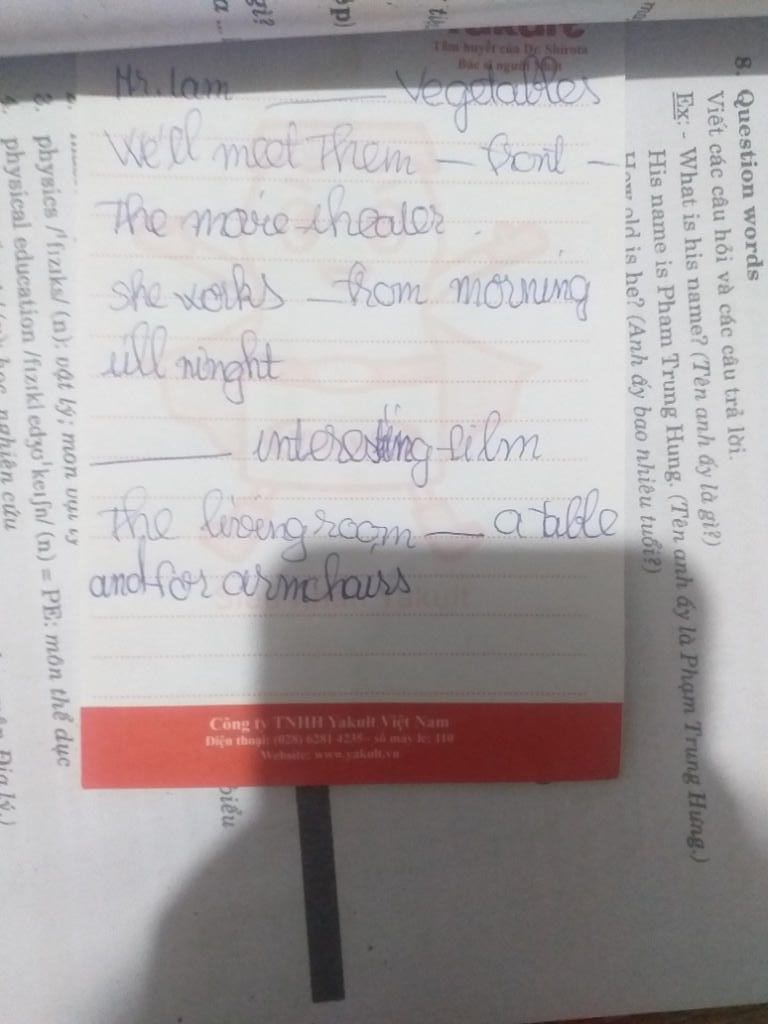 Tâm huyết của Dr. Shirota
Bác sĩ người Nhật
Mr. Lam ______ vegetables
We'll meet them _ front _
the movie theater.
she works _ from morning
till ninght
______ interesting film
the living room __ a table
and for armchairs
Công ty TNHH Yakult Việt Nam
Điện thoại: (028) 6281 4238 - số máy lẻ: 110
Website: www.yakult.vn
8. Question words
Viết các câu hỏi và các câu trả lời.
Ex: - What is his name? (Tên anh ấy là gì?)
His name is Pham Trung Hung. (Tên anh ấy là Phạm Trung Hưng.)
How old is he? (Anh ấy bao nhiêu tuổi?)
3. physics /'fɪzɪks/ (n): vật lý; môn vật lý
4. physical education /fɪzɪkl edʒu'keɪʃn/ (n) = PE: môn thể dục
học, nghiên cứu
môn Địa lý.)
biểu
gì?